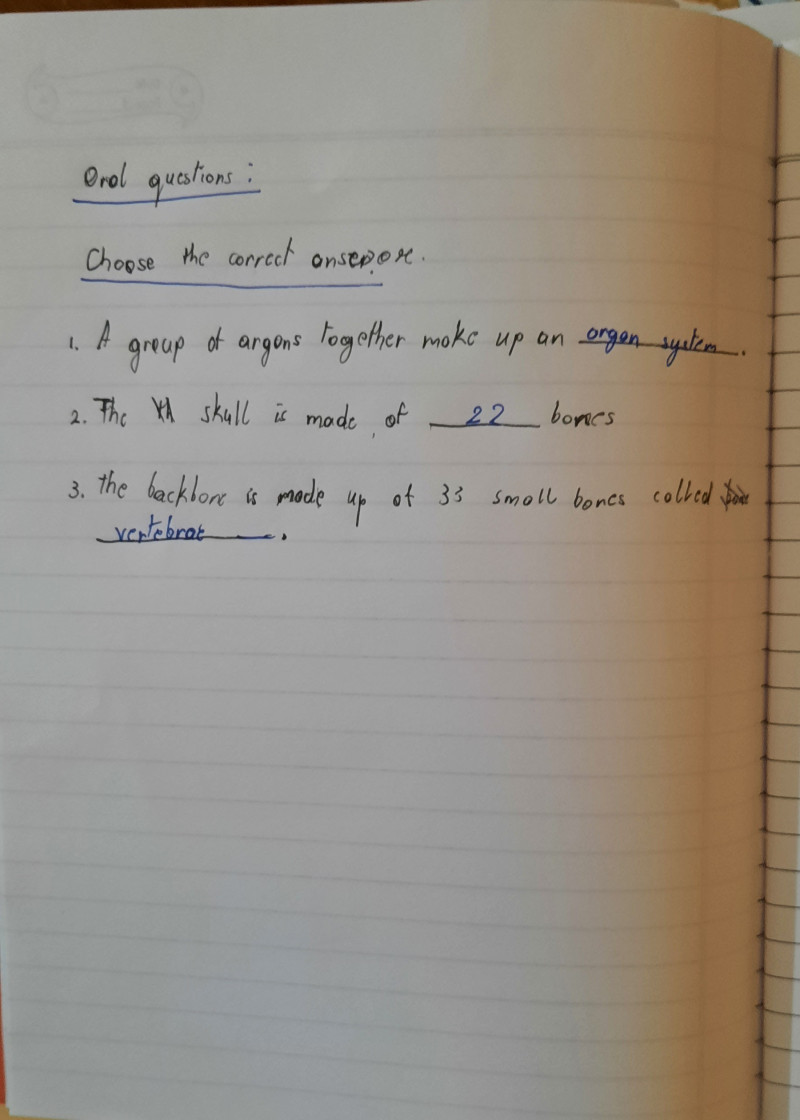 Oral questions:
Choose the correct
1. A group of argons together make up an organ system.
2. The skull is made of 22 bones
3. the backbone is made up of 33 small bones called
vertebrae.